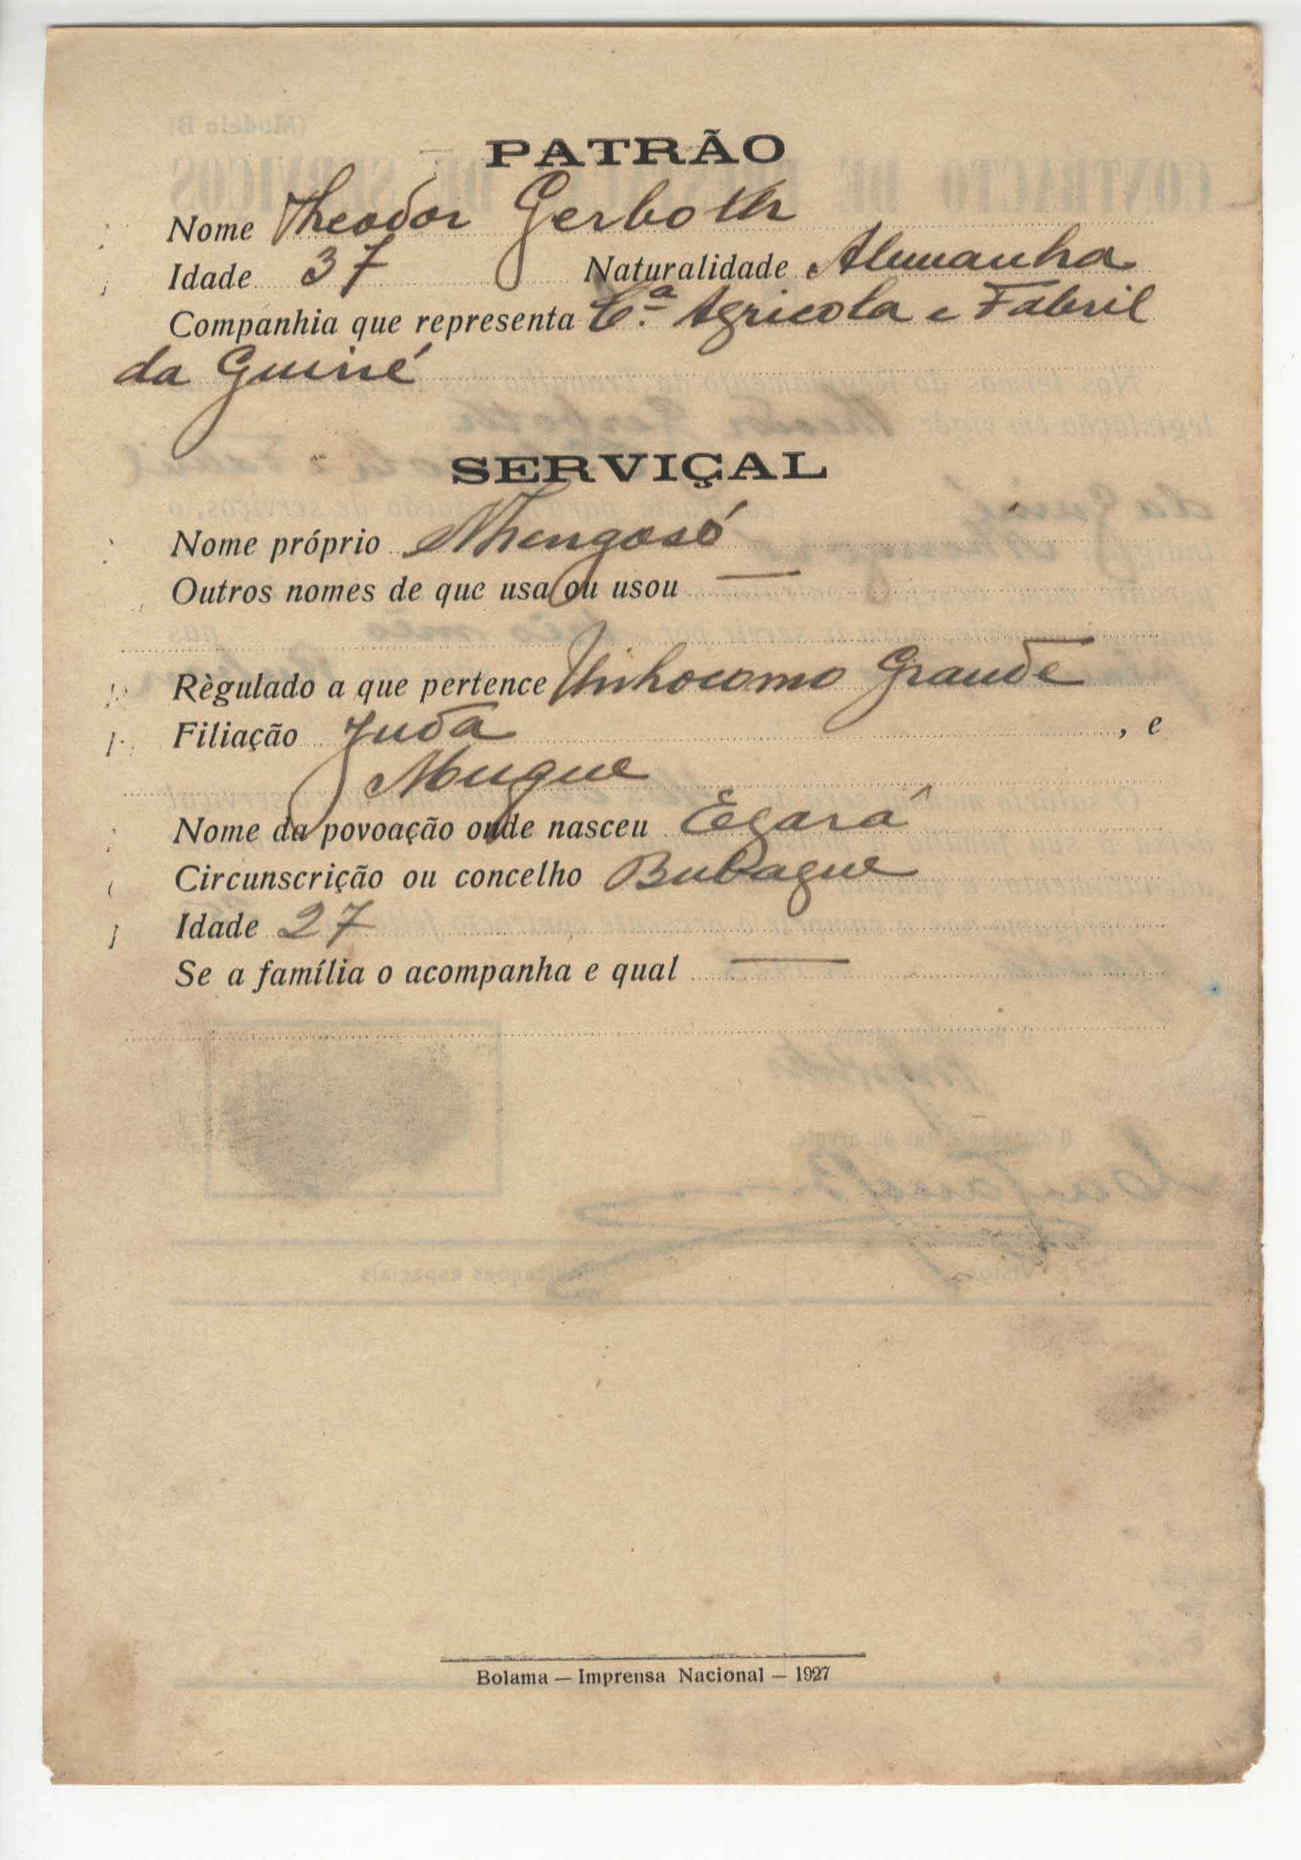 PATRÃO
Nome Theodor Gerboth
Idade 37 Naturalidade Alemanha
Companhia que representa C.ª Agricola e Fabril
da Guiné
SERVIÇAL
Nome próprio Nhengosó
Outros nomes de que usa ou usou —
Règulado a que pertence Unhocomo Grande
Filiação Juda , e
Mugue
Nome da povoação onde nasceu Egará
Circunscrição ou concelho Bubaque
Idade 27
Se a família o acompanha e qual —
Bolama — Imprensa Nacional — 1927